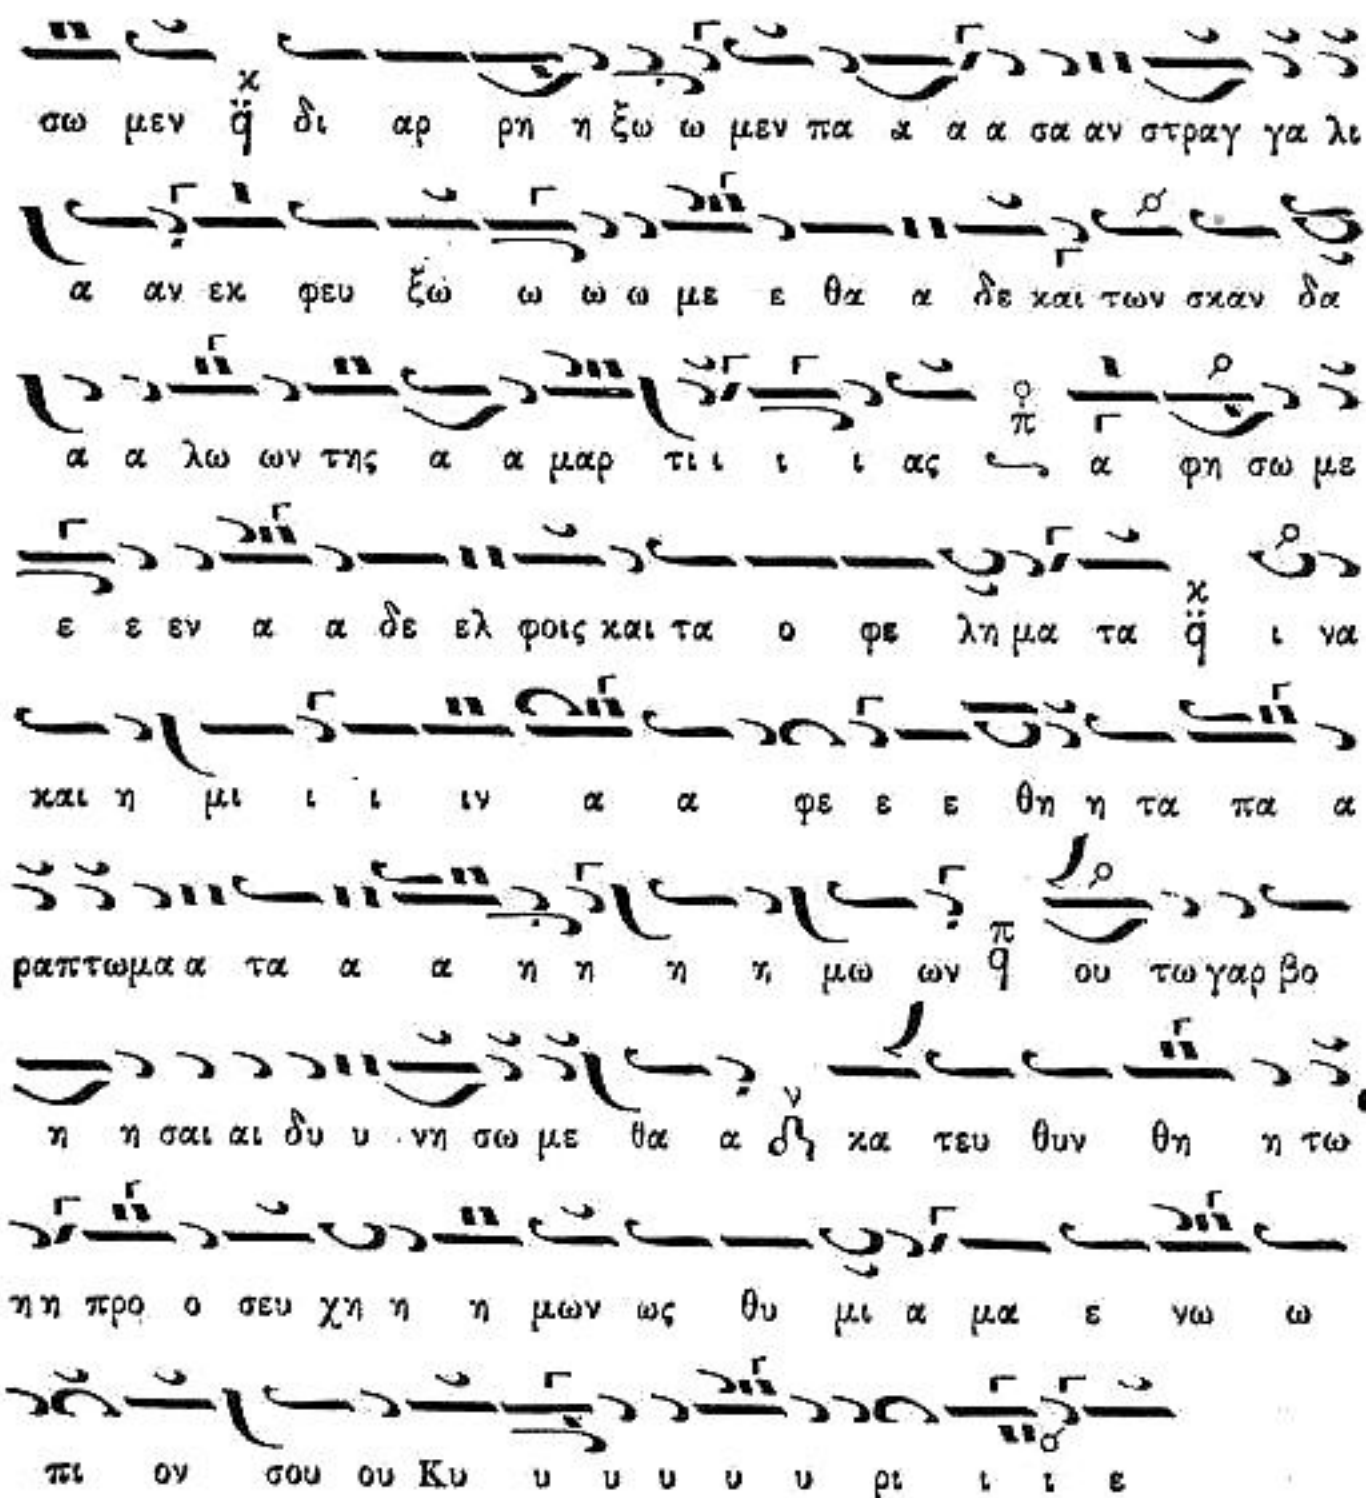 σω μεν κ q̈ δι αρ ρη η ξω ω μεν πα α α α σα αν στραγ γα λι
α αν εκ φευ ξω ω ω ω με ε θα α δε και των σκαν δα
α α λω ων της α α μαρ τι ι ι ι ας π α φη σω με
ε ε εν α α δε ελ φοις και τα ο φε λη μα τα κ q̈ ι να
και η μι ι ι ιν α α φε ε ε θη η τα πα α
ραπτωμα α τα α α η η η η μω ων π q ου τω γαρ βο
η η σαι αι δυ υ νη σω με θα α ν κα τευ θυν θη η τω
η η προ ο σευ χη η η μων ως θυ μι α μα ε νω ω
πι ον σου ου Κυ υ υ υ υ υ ρι ι ι ε